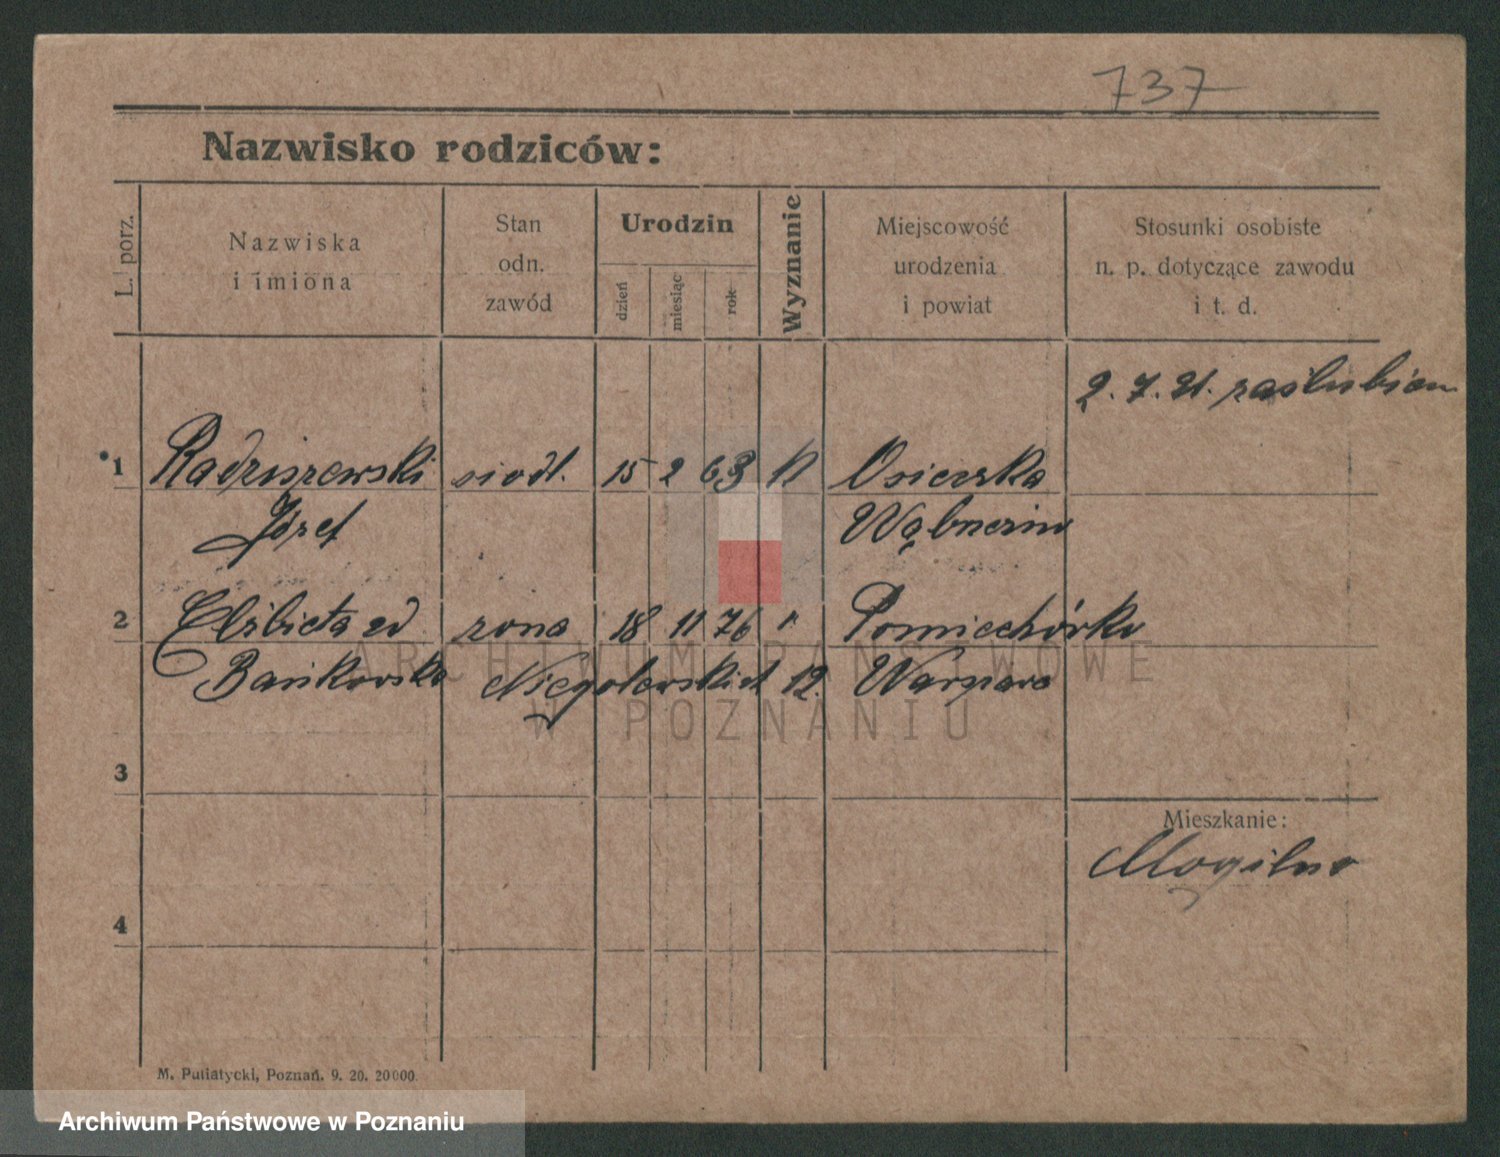 737
Nazwisko rodziców:
L. porz.
Nazwiska
i imiona
Stan
odn.
zawód
Urodzin
dzień
miesiąc
rok
Wyznanie
Miejscowość
urodzenia
i powiat
Stosunki osobiste
n. p. dotyczące zawodu
i t. d.
2. 7. 21. zaślubien
1 Radziszewski siodl. 15 2 63 K Osieczka
Józef Wąbrzeźno
2 Elżbieta zd żona 18 11 76 " Pomiechórko
Bańkowska Niegolewskich 12. Warszawa
ARCHIWUM PAŃSTWOWE
W POZNANIU
3
Mieszkanie:
Mogilno
4
M. Putiatycki, Poznań. 9. 20. 20000.
Archiwum Państwowe w Poznaniu